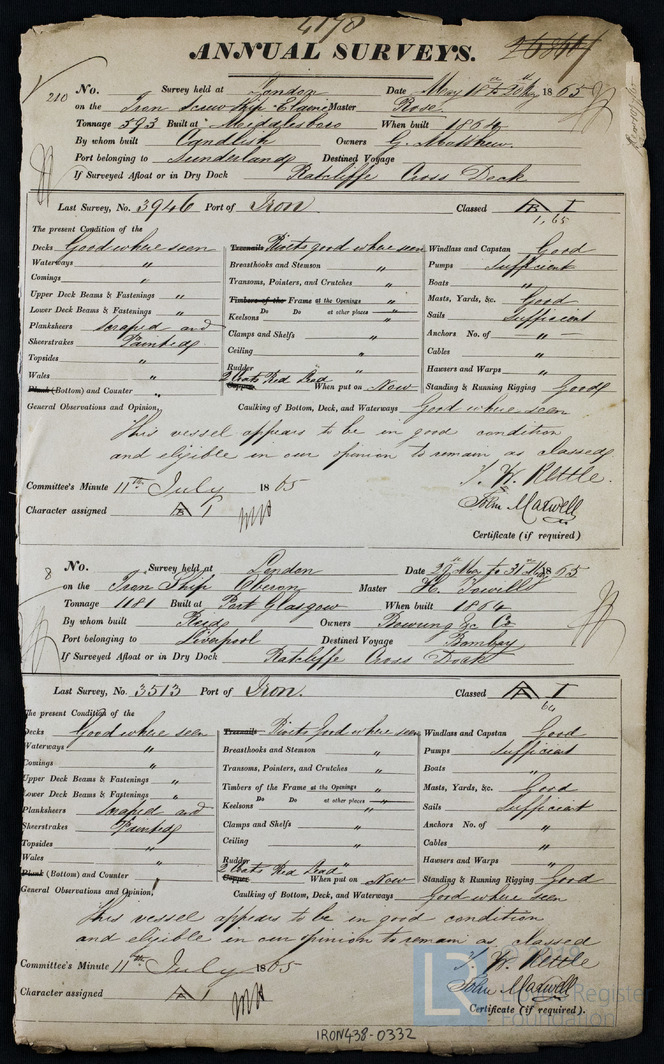 4198
ANNUAL SURVEYS.
210
No. Survey held at London Date May 18th to 20th May 1865
on the Iron Screw Ship Elaine Master Rose
Tonnage 593 Built at Middlesboro When built 1864
By whom built Candlish Owners G. Matthew.
Port belonging to Sunderland Destined Voyage
If Surveyed Afloat or in Dry Dock Ratcliffe Cross Dock
Last Survey, No. 3946 Port of Iron. Classed A 1
1,65
The present Condition of the
Decks Good where seen Treenails Rivets good where seen Windlass and Capstan Good
Waterways " Breasthooks and Stemson " Pumps Sufficient
Comings " Transoms, Pointers, and Crutches " Boats "
Upper Deck Beams & Fastenings " Timbers of the Frame at the Openings " Masts, Yards, &c. Good
Lower Deck Beams & Fastenings " Do Do at other places " Sails Sufficient
Keelsons "
Planksheers scraped and Clamps and Shelfs " Anchors No. of "
Sheerstrakes Painted Ceiling " Cables "
Topsides " Rudder " Hawsers and Warps "
Wales " 2 Coats Red Lead
Copper When put on Now Standing & Running Rigging Good
Plank (Bottom) and Counter "
General Observations and Opinion, Caulking of Bottom, Deck, and Waterways Good where seen
This vessel appears to be in good condition
and eligible in our opinion to remain as classed
T. W. Kettle.
John Maxwell
Committee's Minute 11th July 1865
Character assigned A 1
Certificate (if required)
8
No. Survey held at London Date 29th May to 31st May 1865
on the Iron Ship Oberon Master H. Towills
Tonnage 1181 Built at Port Glasgow When built 1864
By whom built Reid Owners Bowring & Co
Port belonging to Liverpool Destined Voyage Bombay
If Surveyed Afloat or in Dry Dock Ratcliffe Cross Dock
Last Survey, No. 3513 Port of Iron. Classed A 1
64
The present Condition of the
Decks Good where seen Treenails Rivets good where seen Windlass and Capstan Good
Waterways " Breasthooks and Stemson " Pumps Sufficient
Comings " Transoms, Pointers, and Crutches " Boats "
Upper Deck Beams & Fastenings " Timbers of the Frame at the Openings " Masts, Yards, &c. Good
Lower Deck Beams & Fastenings " Do Do at other places " Sails Sufficient
Keelsons "
Planksheers scraped and Clamps and Shelfs " Anchors No. of "
Sheerstrakes Painted Ceiling " Cables "
Topsides " Rudder " Hawsers and Warps "
Wales " 2 Coats Red Lead
Copper When put on Now Standing & Running Rigging Good
Plank (Bottom) and Counter
General Observations and Opinion, Caulking of Bottom, Deck, and Waterways Good where seen
This vessel appears to be in good condition
and eligible in our opinion to remain as classed
T. W. Kettle
John Maxwell
Committee's Minute 11th July 1865
Character assigned A 1
Certificate (if required).
LR
Lloyd's Register
Foundation
IRON438-0332